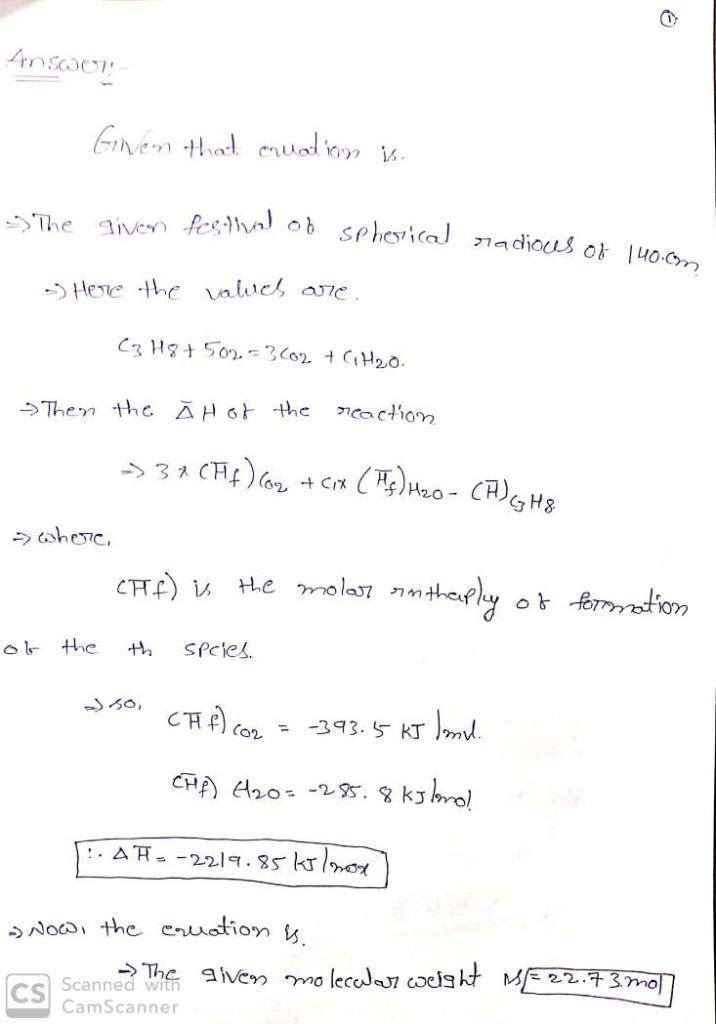 ①
Answer:-
Given that eruation is.
⇒ The given festival ob spherical radious of 140.cm
⇒ Here the values are.
C3 H8 + 5O2 = 3CO2 + C1H2O.
⇒ Then the Δ̄H of the reaction
⇒ 3 x (H̄f)CO2 + C1x (H̄f)H2O - (H̄)C3H8
⇒ where,
(H̄f) is the molar inthaply of formation
ob the th spcies.
⇒ so, (H̄f)CO2 = -393.5 KJ/mol.
(H̄f) H2O = -285.8 KJ/mol
∴ ΔH̄ = -2219.85 KJ/mox
⇒ Now, the eruation is.
⇒ The given molecular weight is = 22.73.mol
CS Scanned with
CamScanner